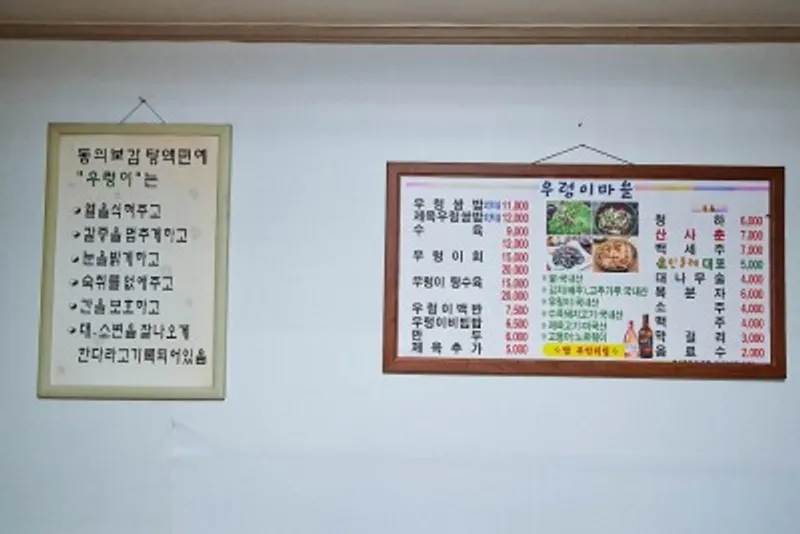 동의보감 탕액편에
"우렁이"는
열을식혀주고
갈증을 멈추게하고
눈을밝게하고
숙취를 없애주고
간을 보호하고
대.소변을 잘나오게
간다라고기록되어있음
우렁이마을
우렁쌈밥 11,000
제육우렁쌈밥 12,000
수육 9,000
12,000
우렁이회 15,000
20,000
우렁이 탕수육 15,000
20,000
우렁이백반 7,500
우렁이비빔밥 6,500
만두 6,000
제육추가 5,000
쌀:국내산
김치(배추),고추가루:국내산
우렁이:국내산
수육돼지고기:국내산
제육고기:미국산
고등어:노르웨이
청하 6,000
산사춘 7,000
백세주 7,000
대포 5,000
대나무술 4,000
복분자 6,000
소주 4,000
맥주 4,000
막걸리 3,000
음료수 2,000